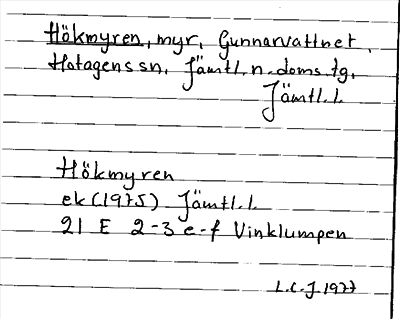 Hökmyren, myr, Gunnarvattnet,
Hotagens sn. Jämtl. n. doms. tg.
Jämtl. l.
Hökmyren
ek (1975) Jämtl. l.
21 E 2-3 e-f Vinklumpen
L.C.J 1977